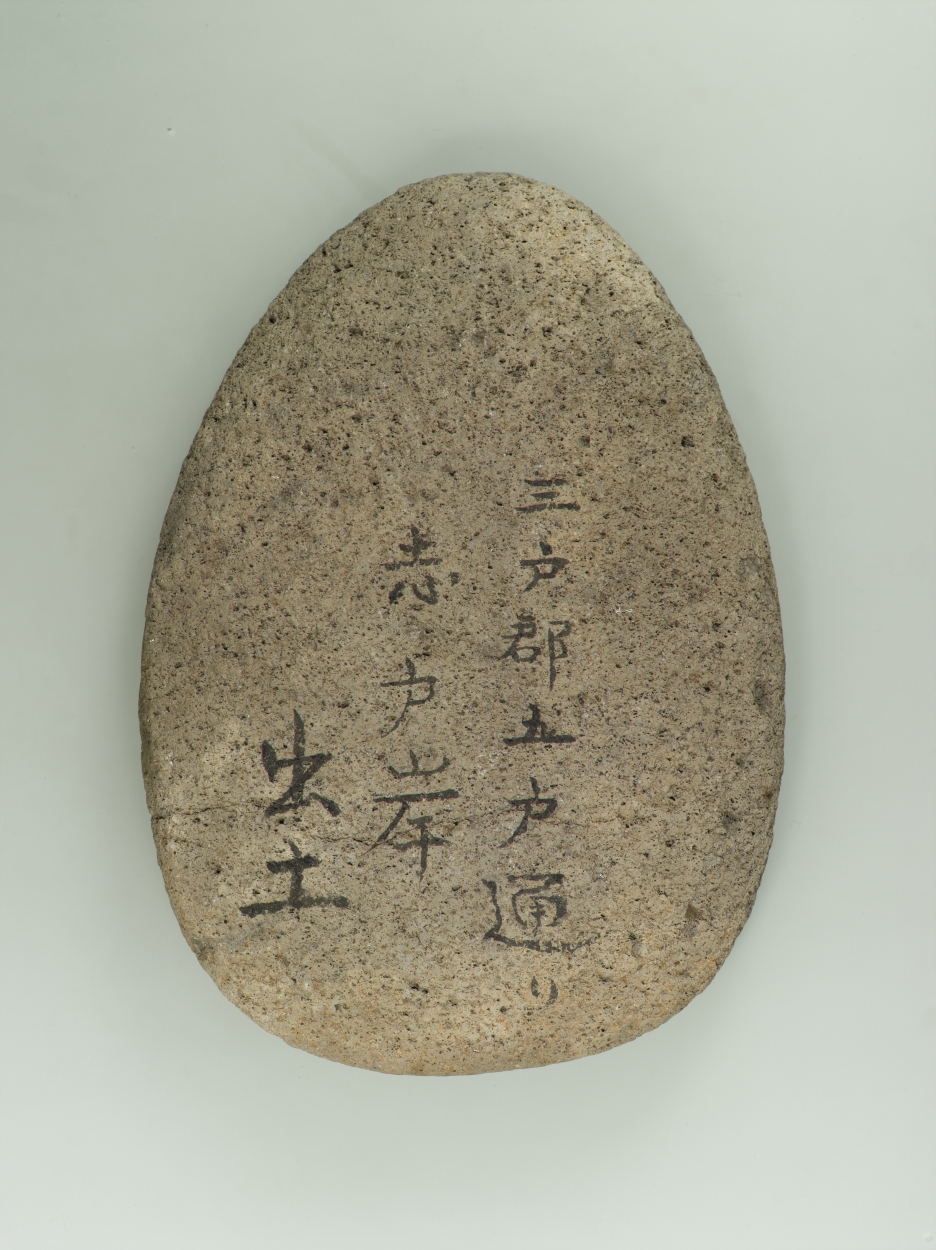 三戸郡五戸通り
志戸岸
出土